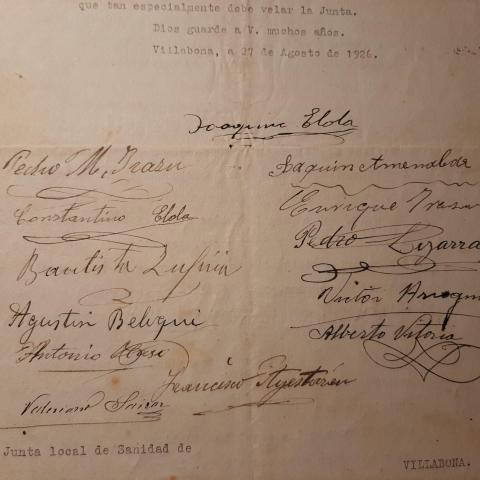 que tan especialmente debe velar la Junta.
Dios guarde a V. muchos años.
Villabona, a 27 de Agosto de 1926.
Joaquin Elola
Pedro M. Irazu
Joaquin Amenabar
Constantino Elola
Enrique Irazu
Bautista
Pedro Lizarra
Agustin Beloqui
Victor
Antonio
Alberto Vitoria
Francisco
Junta local de Sanidad de
VILLABONA.